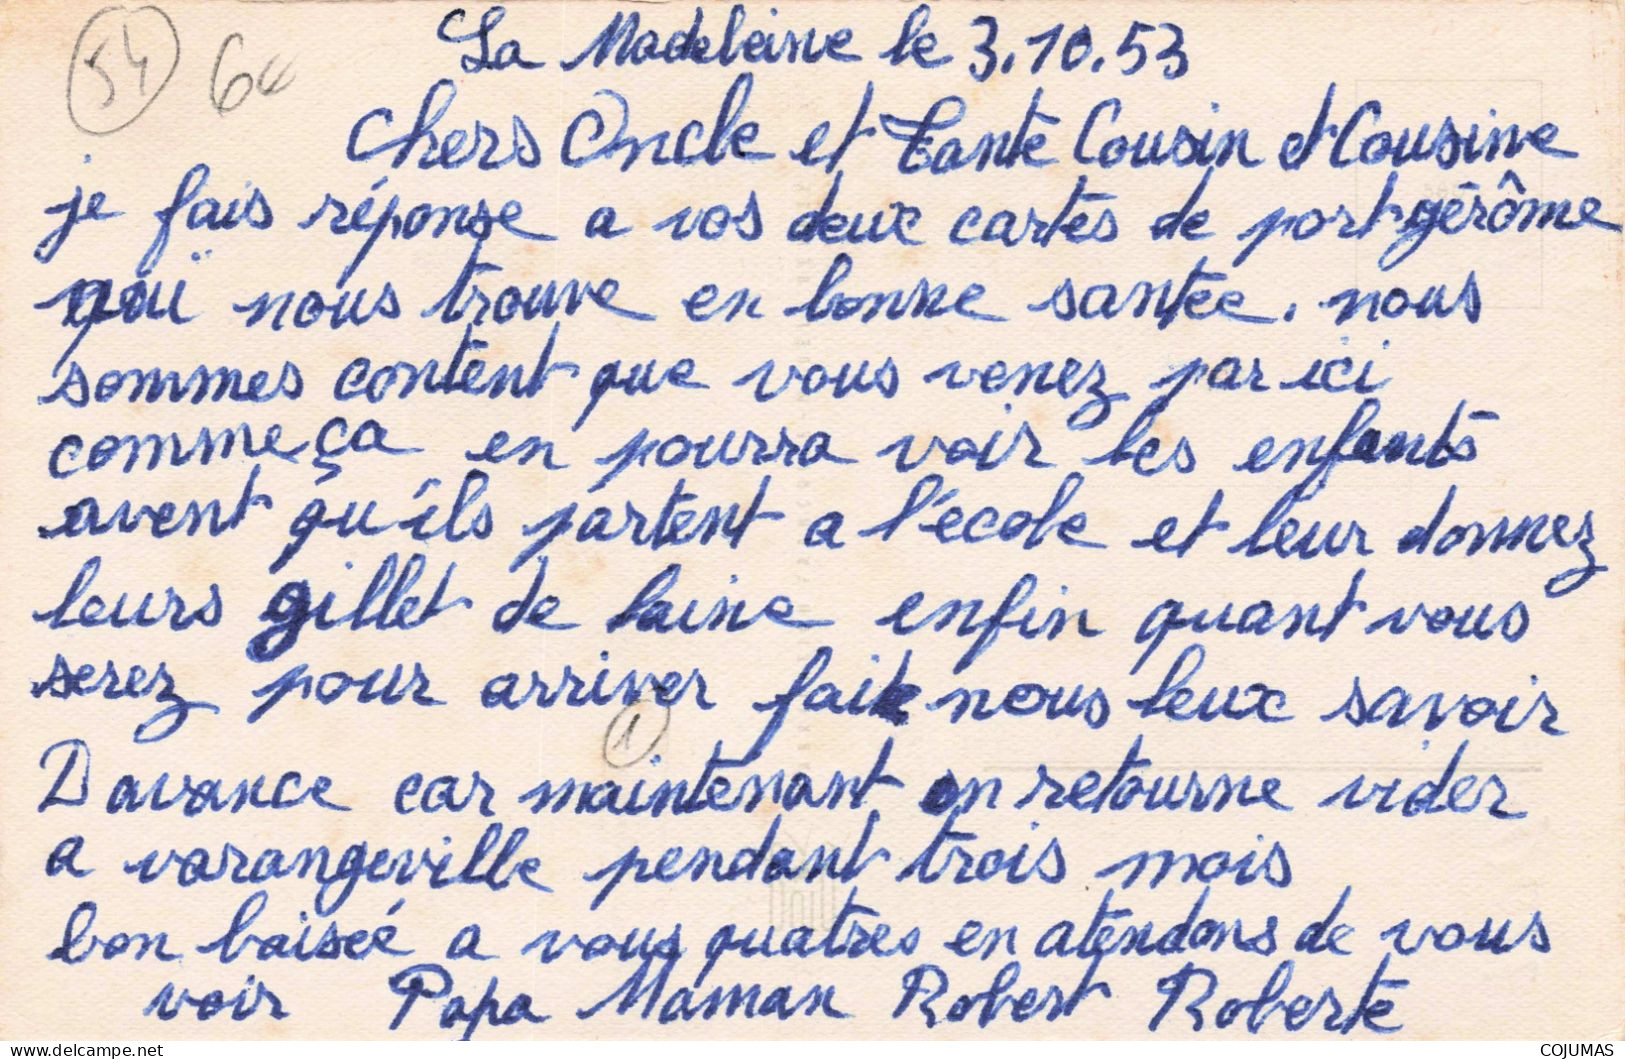 54 60
La Madeleine le 3.10.53
Chers Oncle et Tante Cousin et Cousine
je fais réponse a vos deux cartes de port gérôme
qui nous trouve en bonne santée. nous
sommes content que vous venez par ici
comme ça en pourra voir les enfants
avent qu'ils partent a l'école et leur donnez
leurs gillet de laine enfin quant vous
serez pour arriver faite nous leux savoir
1
D avance car maintenant on retourne vider
a varangeville pendant trois mois
bon baisée a vous quatres en atendons de vous
voir Papa Maman Robert Roberte
delcampe.net
COJUMAS